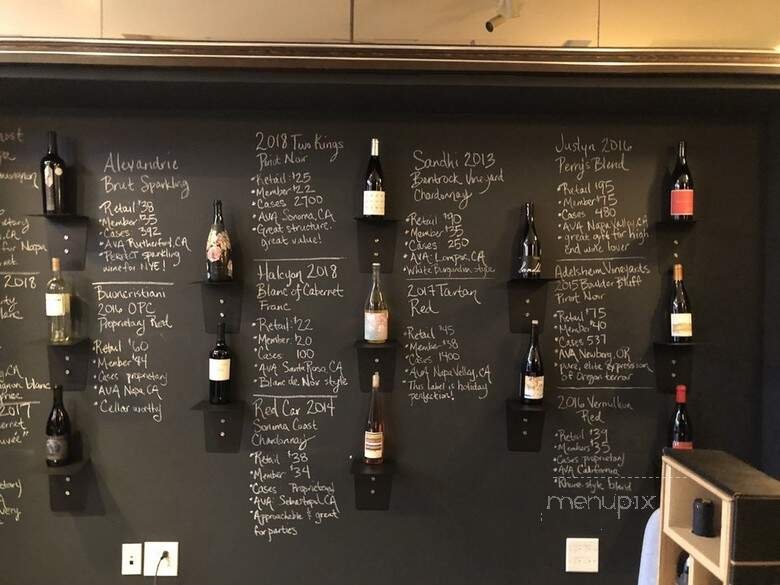 Alexandrie
Brut Sparkling
• Retail $38
• Member $35
• Cases 392
• AVA Rutherford, CA
• Perfect sparkling
wine for NYE!
Buoncristiani
2016 OPC
Proprietary Red
Retail $60
• Member $44
• Cases proprietary
• AVA Napa
• Cellar worthy
2018 Two Kings
Pinot Noir
• Retail: $25
• Member $22
• Cases 2700
• AVA Sonoma, CA
• Great structure.
great value!
Halcyon 2018
Blanc of Cabernet
Franc
• Retail: $22
• Member $20
• Cases: 100
• AVA Santa Rosa, CA
• Blanc de Noir style
Red Car 2014
Sonoma Coast
Chardonnay
• Retail $38
• Member $34
• Cases: Proprietary
• AVA Sebastopol, CA
• Approachable & great
for parties
Sandhi 2013
Bentrock Vineyard
Chardonnay
• Retail $90
• Member $35
• Cases 250
• AVA: Lompoc, CA
• White Burgundian style
2017 Tartan
Red
• Retail $45
• Member $38
• Cases 1400
• AVA Napa Valley, CA
• This label is holiday
perfection!
Juslyn 2016
Perry's Blend
• Retail $95
• Member $75
• Cases 480
• AVA Napa Valley, CA
• great gift for high
end wine lover
Adelsheim Vineyards
2015 Boulder Bluff
Pinot Noir
• Retail $75
• Member $40
• Cases 537
AVA Newberg, OR
• pure, elite expression
of Oregon terroir
2016 Vermillion
Red
• Retail $39
• Members $35
• Cases proprietary
• AVA California
• Rhone style blend
menupix